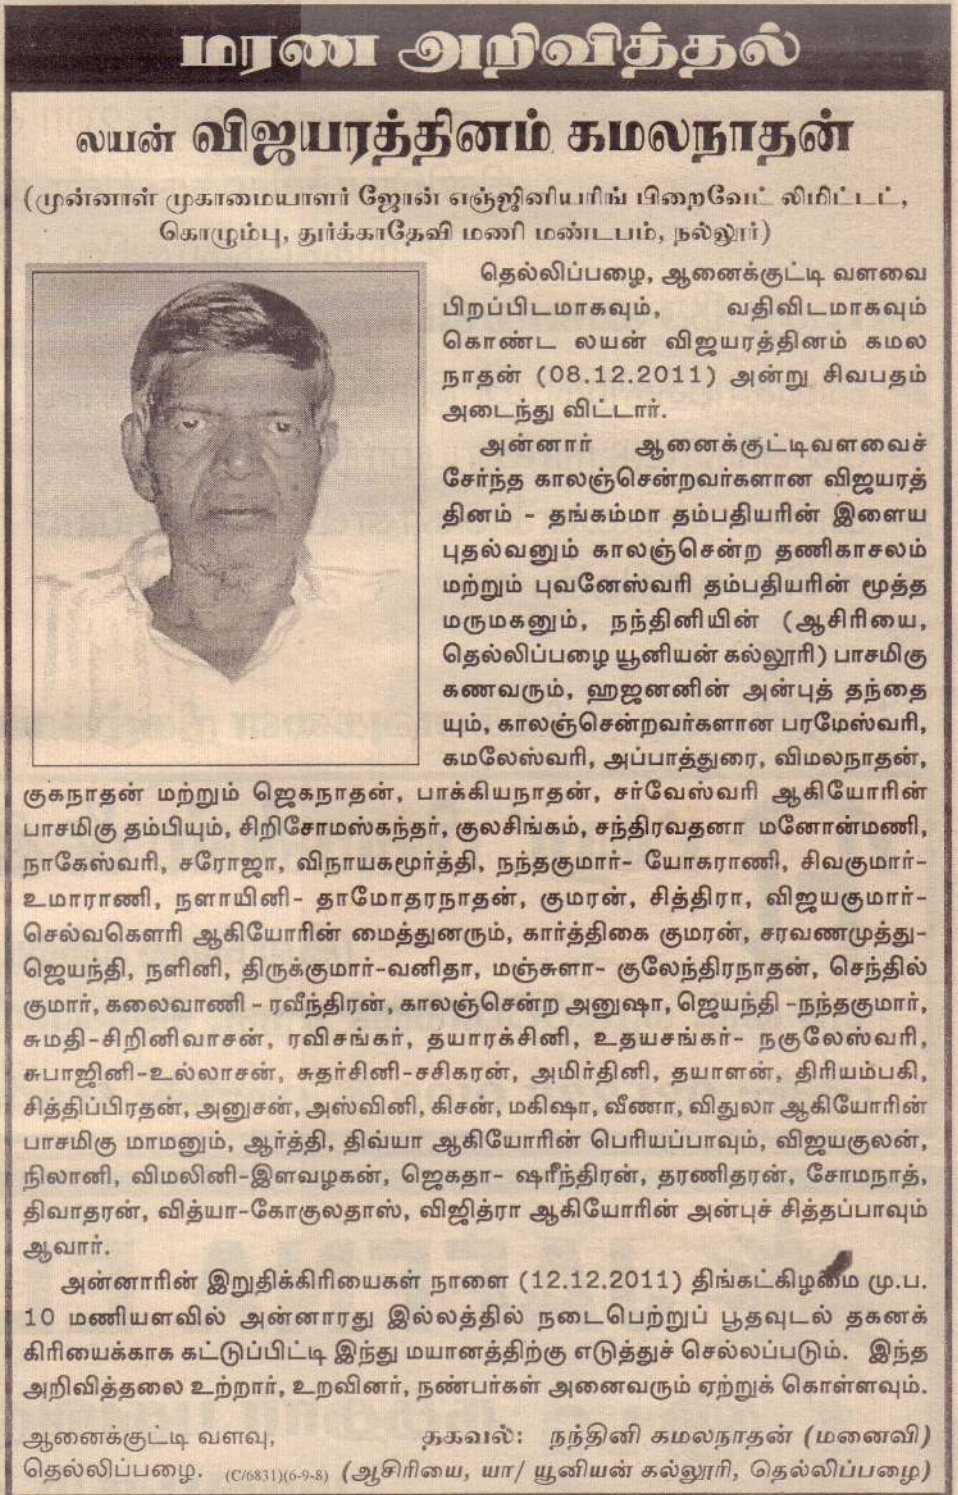 மரண அறிவித்தல்
லயன் விஜயரத்தினம் கமலநாதன்
(முன்னாள் முகாமையாளர் ஜோன் எஞ்ஜினியரிங் பிறைவேட் லிமிட்டட்,
கொழும்பு, துர்க்காதேவி மணி மண்டபம், நல்லூர்)
தெல்லிப்பழை, ஆனைக்குட்டி வளவை
பிறப்பிடமாகவும், வதிவிடமாகவும்
கொண்ட லயன் விஜயரத்தினம் கமல
நாதன் (08.12.2011) அன்று சிவபதம்
அடைந்து விட்டார்.
அன்னார் ஆனைக்குட்டிவளவைச்
சேர்ந்த காலஞ்சென்றவர்களான விஜயரத்
தினம் - தங்கம்மா தம்பதியரின் இளைய
புதல்வனும் காலஞ்சென்ற தணிகாசலம்
மற்றும் புவனேஸ்வரி தம்பதியரின் மூத்த
மருமகனும், நந்தினியின் (ஆசிரியை,
தெல்லிப்பழை யூனியன் கல்லூரி) பாசமிகு
கணவரும், ஹஜனனின் அன்புத் தந்தை
யும், காலஞ்சென்றவர்களான பரமேஸ்வரி,
கமலேஸ்வரி, அப்பாத்துரை, விமலநாதன்,
குகநாதன் மற்றும் ஜெகநாதன், பாக்கியநாதன், சர்வேஸ்வரி ஆகியோரின்
பாசமிகு தம்பியும், சிறிசோமஸ்கந்தர், குலசிங்கம், சந்திரவதனா மனோன்மணி,
நாகேஸ்வரி, சரோஜா, விநாயகமூர்த்தி, நந்தகுமார்- யோகராணி, சிவகுமார்-
உமாராணி, நளாயினி- தாமோதரநாதன், குமரன், சித்திரா, விஜயகுமார்-
செல்வகௌரி ஆகியோரின் மைத்துனரும், கார்த்திகை குமரன், சரவணமுத்து-
ஜெயந்தி, நளினி, திருக்குமார்-வனிதா, மஞ்சுளா- குலேந்திரநாதன், செந்தில்
குமார், கலைவாணி - ரவீந்திரன், காலஞ்சென்ற அனுஷா, ஜெயந்தி -நந்தகுமார்,
சுமதி-சிறினிவாசன், ரவிசங்கர், தயாரக்சினி, உதயசங்கர்- நகுலேஸ்வரி,
சுபாஜினி-உல்லாசன், சுதர்சினி-சசிகரன், அமிர்தினி, தயாளன், திரியம்பகி,
சித்திப்பிரதன், அனுசன், அஸ்வினி, கிசன், மகிஷா, வீணா, விதுலா ஆகியோரின்
பாசமிகு மாமனும், ஆர்த்தி, திவ்யா ஆகியோரின் பெரியப்பாவும், விஜயகுலன்,
நிலானி, விமலினி-இளவழகன், ஜெகதா- ஷரீந்திரன், தரணிதரன், சோமநாத்,
திவாதரன், வித்யா-கோகுலதாஸ், விஜித்ரா ஆகியோரின் அன்புச் சித்தப்பாவும்
ஆவார்.
அன்னாரின் இறுதிக்கிரியைகள் நாளை (12.12.2011) திங்கட்கிழமை மு.ப.
10 மணியளவில் அன்னாரது இல்லத்தில் நடைபெற்றுப் பூதவுடல் தகனக்
கிரியைக்காக கட்டுப்பிட்டி இந்து மயானத்திற்கு எடுத்துச் செல்லப்படும். இந்த
அறிவித்தலை உற்றார், உறவினர், நண்பர்கள் அனைவரும் ஏற்றுக் கொள்ளவும்.
ஆனைக்குட்டி வளவு, தகவல்: நந்தினி கமலநாதன் (மனைவி)
தெல்லிப்பழை. (C/6831)(6-9-8) (ஆசிரியை, யா/ யூனியன் கல்லூரி, தெல்லிப்பழை)